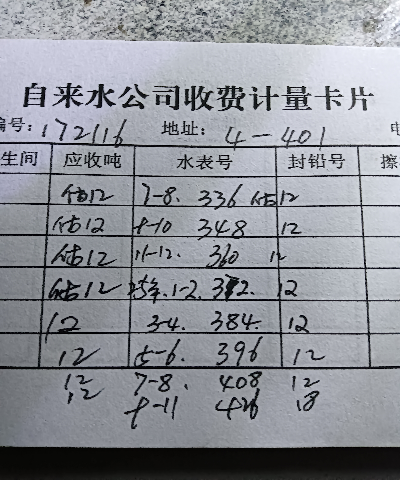 自来水公司收费计量卡片
编号:172116 地址: 4-401 电
生间 应收吨 水表号 封铅号 擦
估12 7-8. 336 估12
估12 9-10 348 12
估12 11-12. 360 12
估12 25年.1-2. 372. 12
12 3-4. 384. 12
12 5-6. 396 12
12 7-8. 408 12
12 9-11 426 18